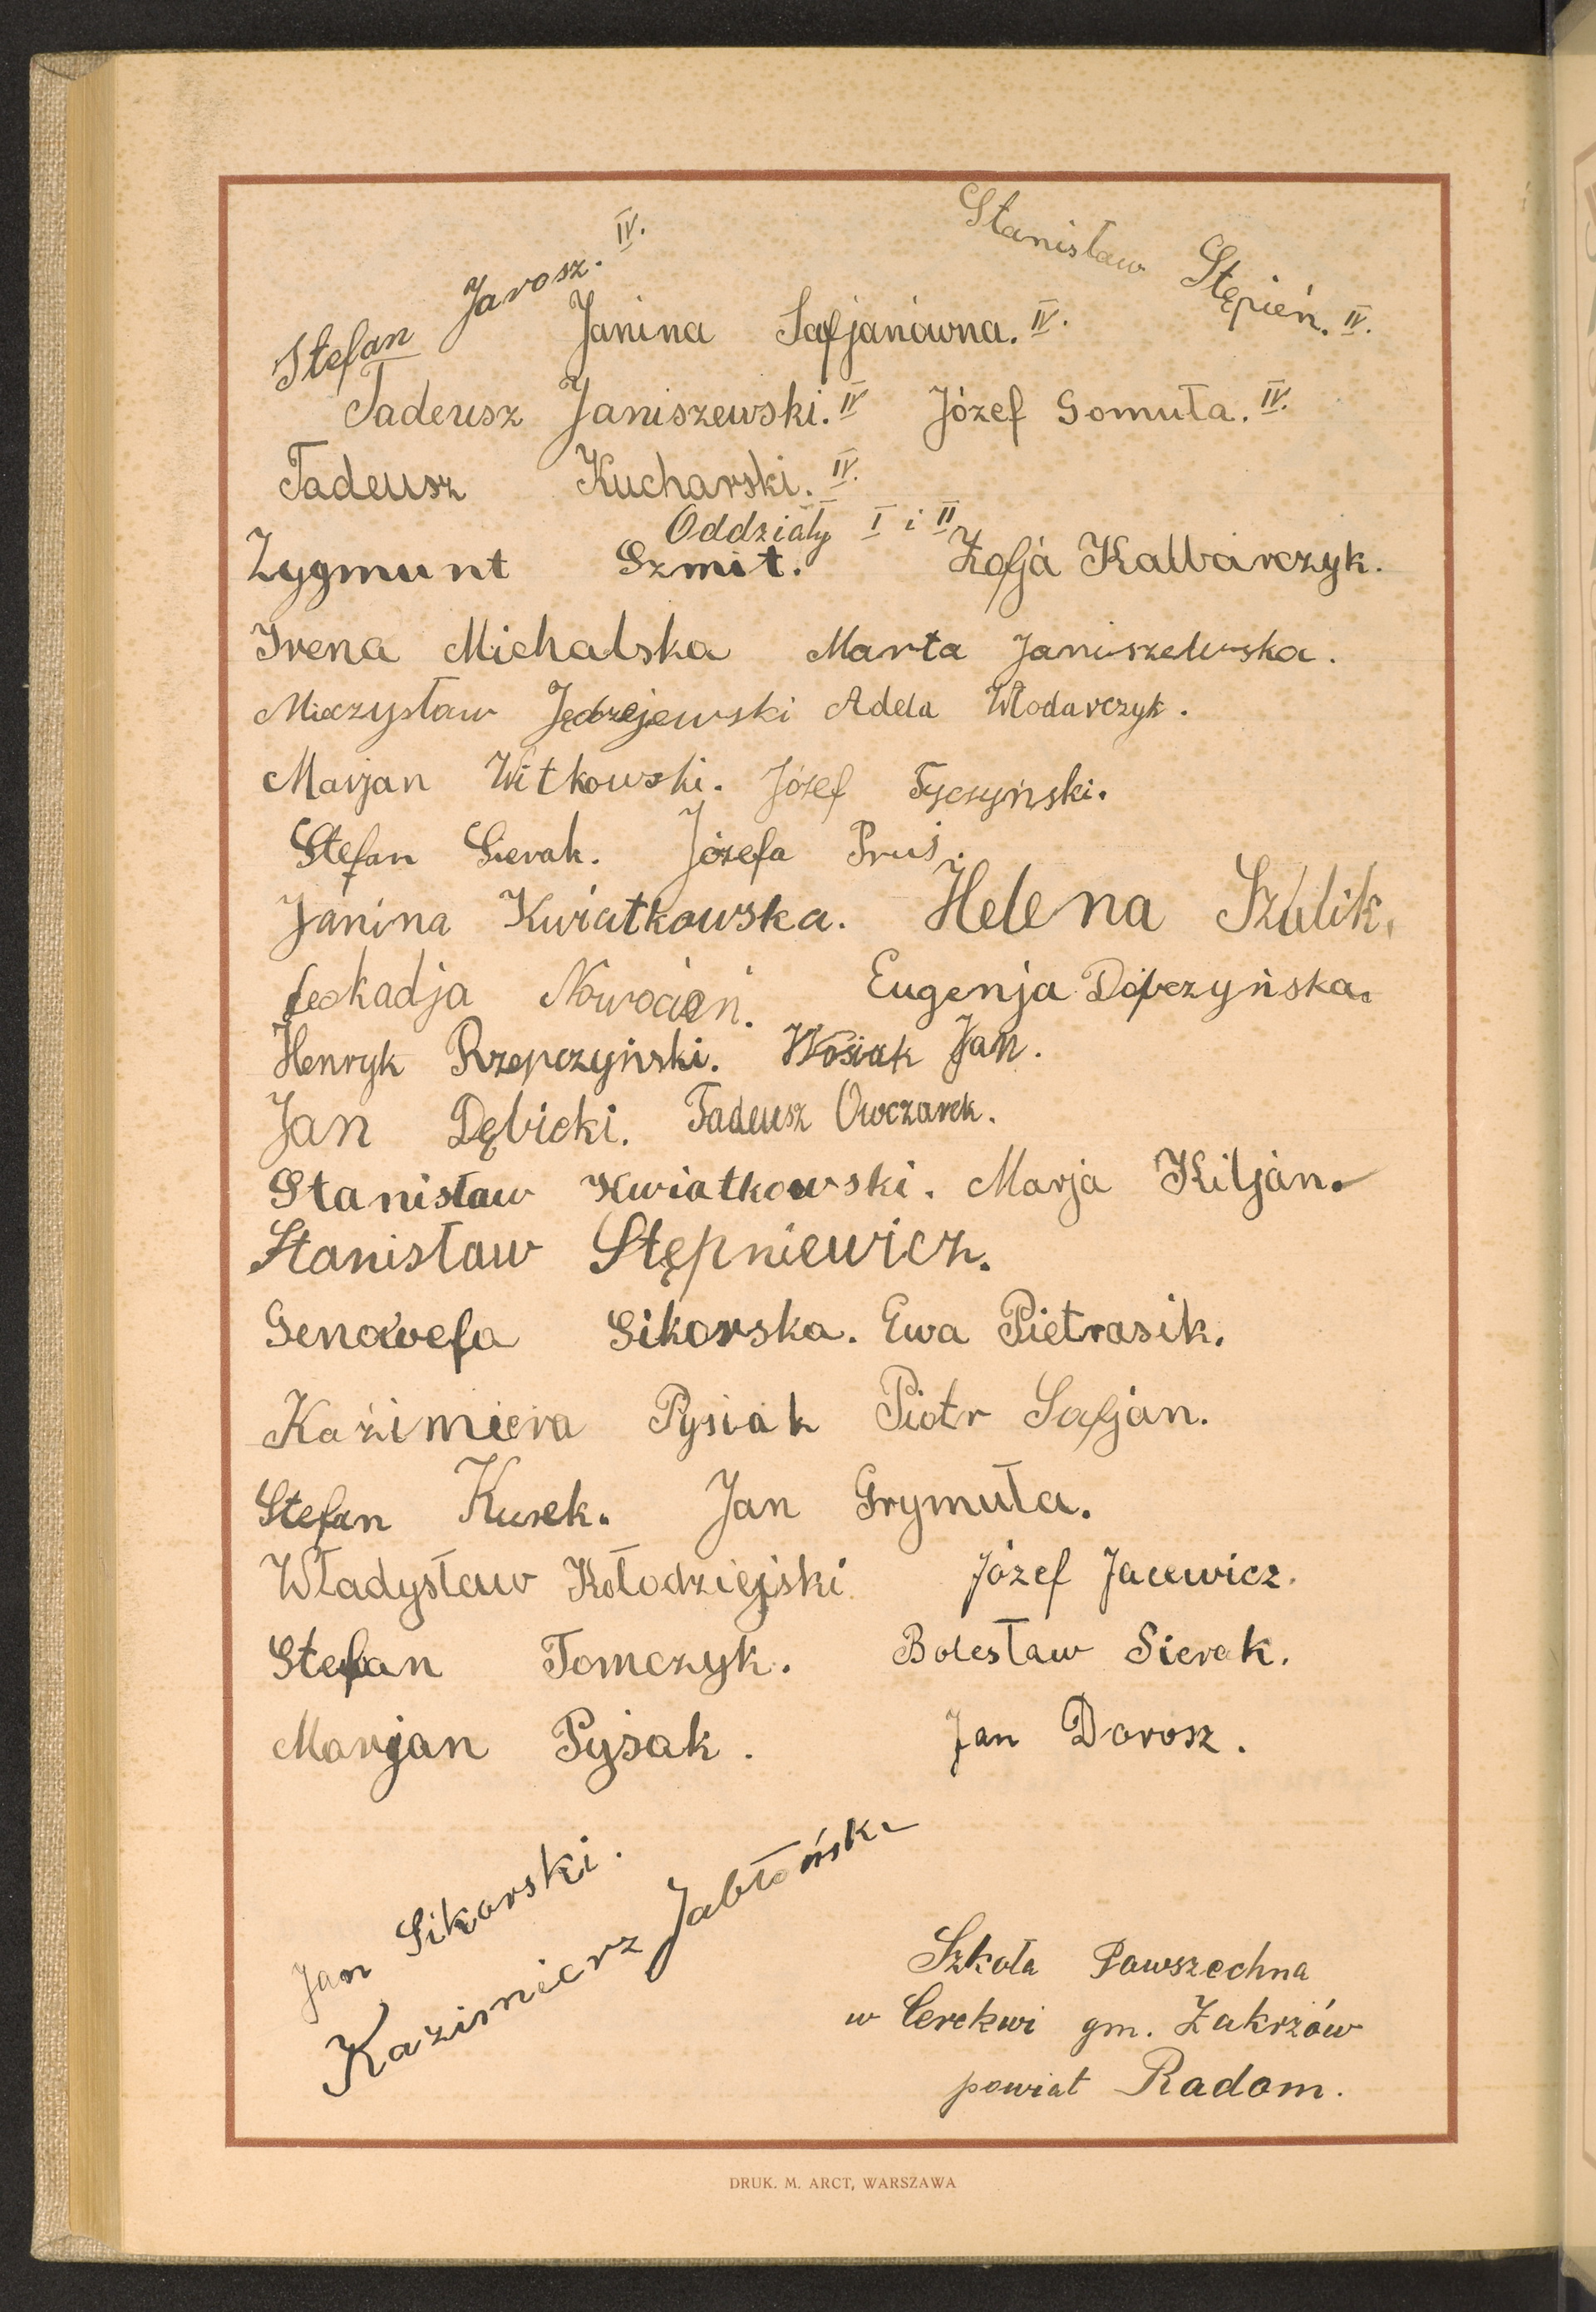 Stefan Jarosz. IV.
Stanisław Stępień. IV.
Janina Safjanówna. IV.
Tadeusz Janiszewski. IV Józef Gomuła. IV.
Tadeusz Kucharski. IV.
Oddziały I i II
Zygmunt Szmit. Zofja Kalbarczyk.
Irena Michalska Marta Janiszewska.
Mieczysław Jędrzejewski Adela Włodarczyk.
Marjan Witkowski. Józef Tyczyński.
Stefan Sierak. Józefa Pruś.
Janina Kwiatkowska. Helena Szulik.
Leokadja Nowocień. Eugenja
Henryk Rzepczyński. Wosiak Jan.
Jan Dębicki. Tadeusz Owczarek.
Stanisław Kwiatkowski. Marja Kiljan.
Stanisław Stępniewicz.
Genowefa Sikorska. Ewa Pietrasik.
Kaźimiera Pysiak Piotr Safjan.
Stefan Kurek. Jan Grymuła.
Władysław Kołodziejski Józef Jacewicz.
Stefan Tomczyk. Bolesław Sierak.
Marjan Pyśak. Jan Dorosz.
Jan Sikorski.
Kazimierz Jabłoński
Szkoła Powszechna
w Cerekwi gm. Zakrzów
powiat Radom.
DRUK. M. ARCT, WARSZAWA